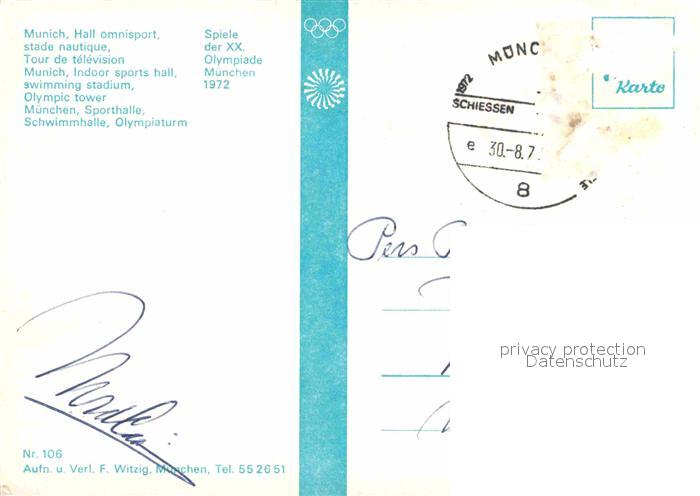 Munich, Hall omnisport,
stade nautique,
Tour de télévision
Munich, Indoor sports hall,
swimming stadium,
Olympic tower
München, Sporthalle,
Schwimmhalle, Olympiaturm
Spiele
der XX.
Olympiade
München
1972
MÜNC
1972
SCHIESSEN
e 30.-8.7
8
Karto
Pers
privacy protection
Datenschutz
Nr. 106
Aufn. u. Verl. F. Witzig, München, Tel. 55 26 51